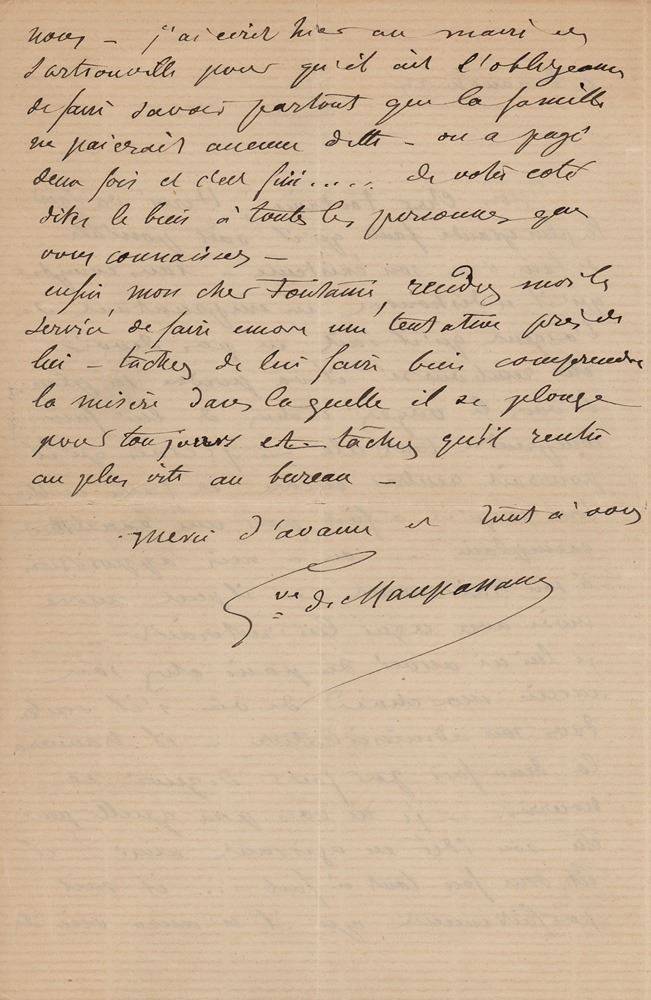 nous – j'ai écrit hier au maire de
Sartrouville pour qu'il ait l'obligeance
de faire savoir partout que la famille
ne paierait aucune dette – on a payé
deux fois et c'est fini..... de votre coté
dites le bien à toutes les personnes que
vous connaissez –
enfin mon cher Fontaine, rendez moi le
service de faire encore une tentative près de
lui – tachez de lui faire bien comprendre
la misère dans laquelle il se plonge
pour toujours et tachez qu'il rentre
au plus vite au bureau –
merci d'avance et tout à vous
de Maupassant